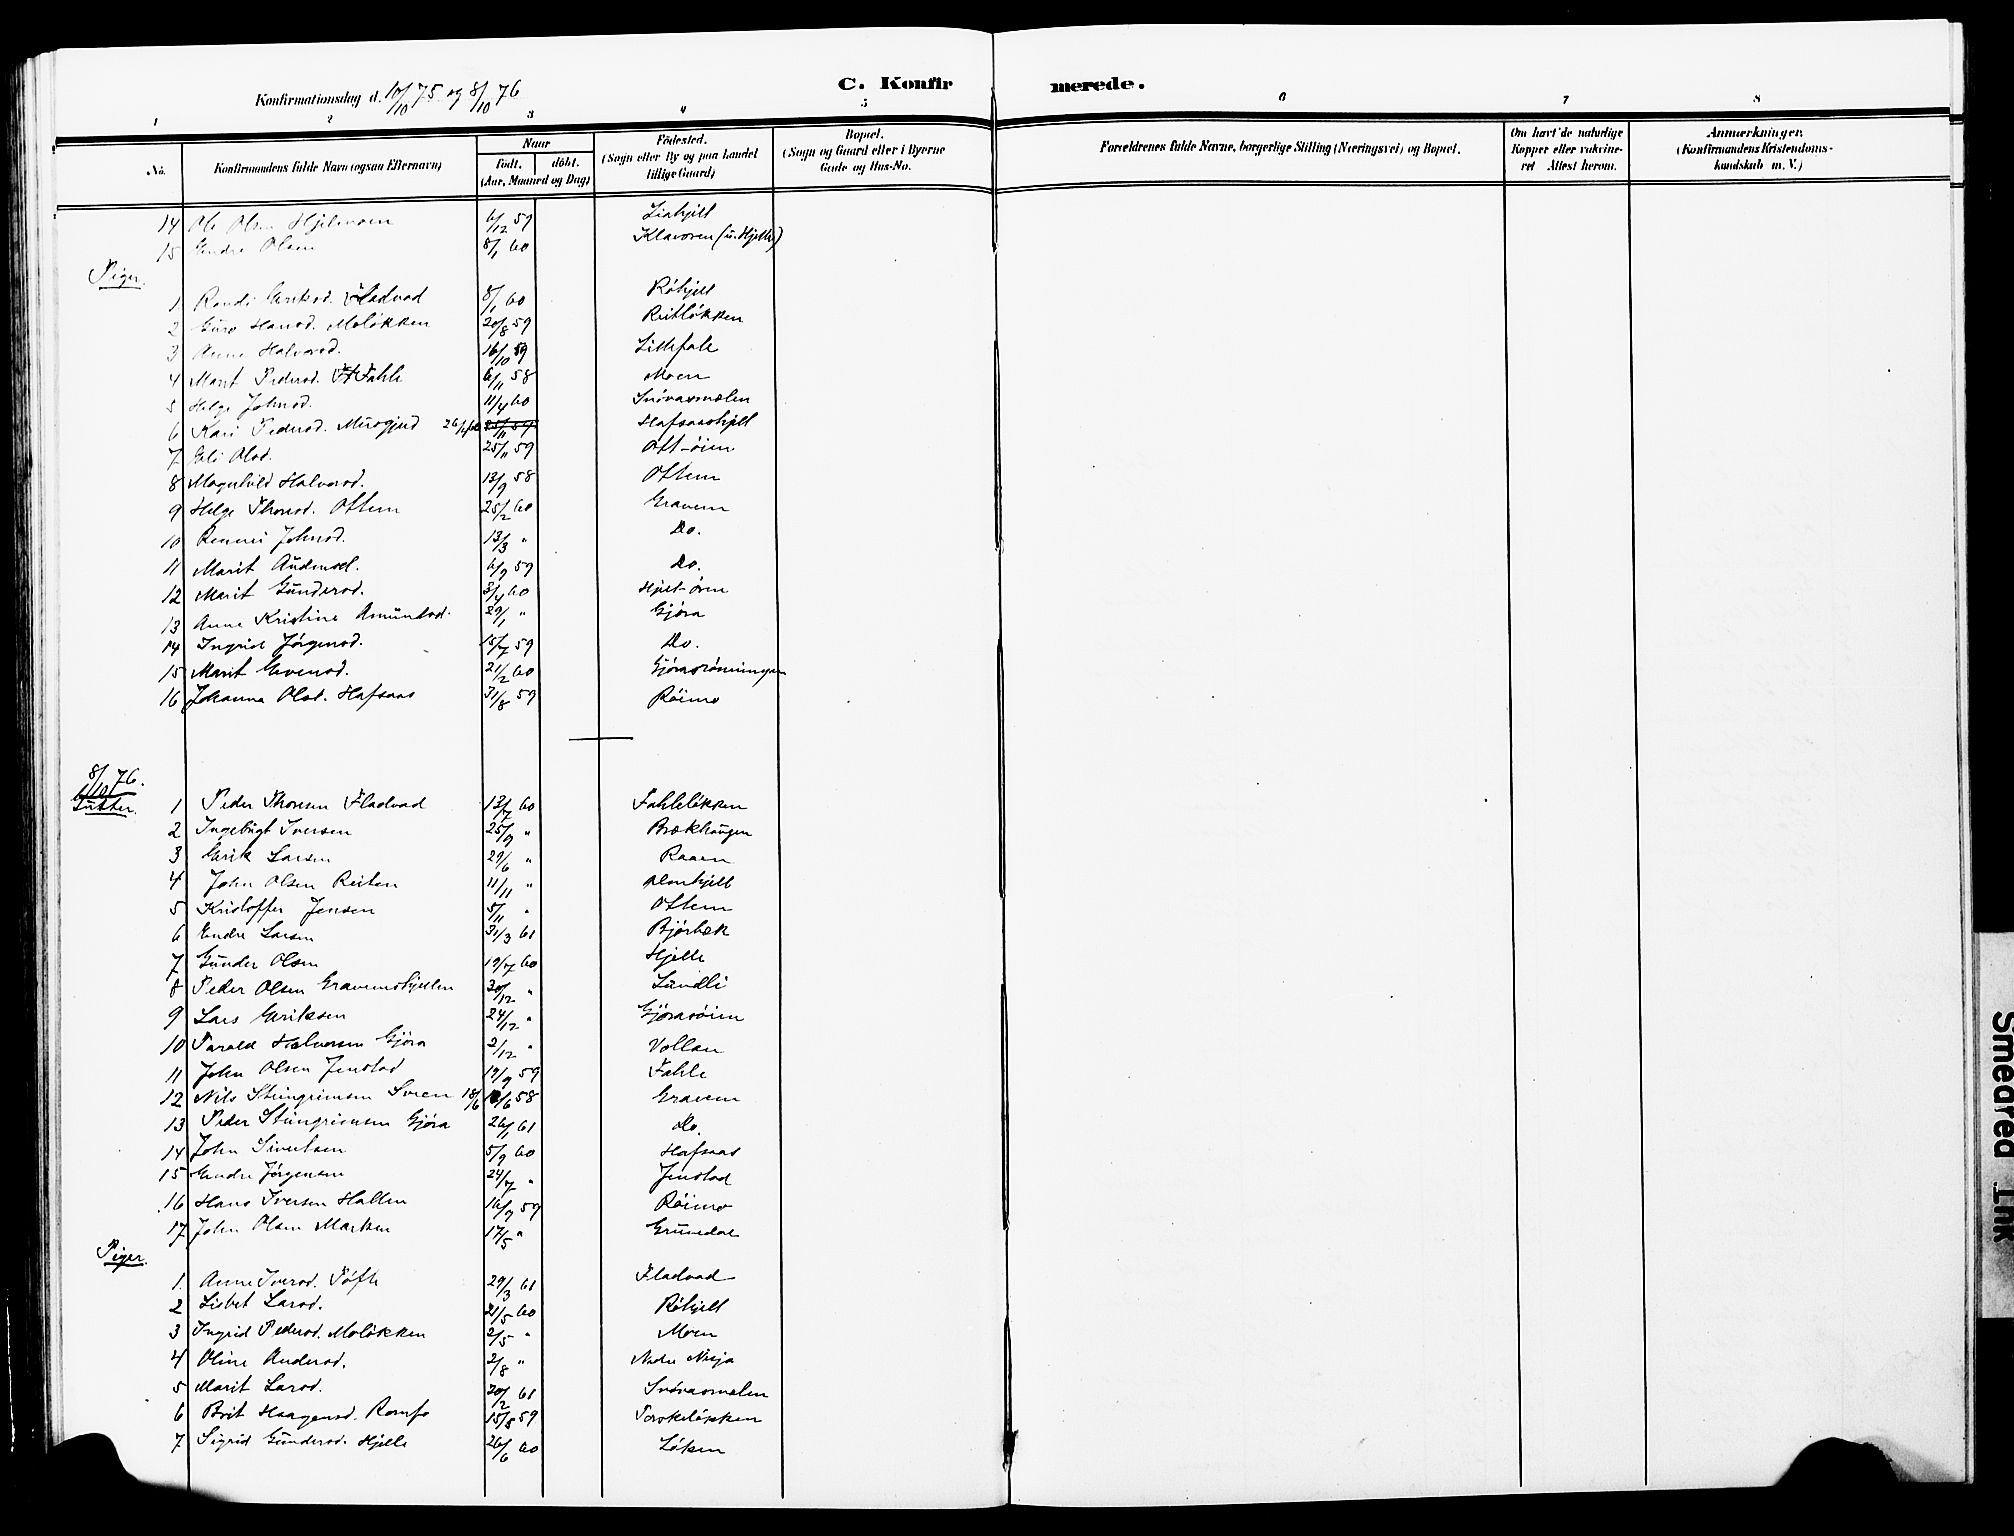 C. Konfir merede.
Konfirmationsdag d. 10/10 75. og 8/10 76
1 2 3 4 5 6 7 8
No. Konfirmandens fulde Navn (ogsaa Efternavn) Naar Født. døbt. (Aar, Maaned og Dag) Fødested. (Sogn eller By og paa Landet tillige Gaard) Bopæl. (Sogn og Gaard eller i Byerne Gade og Hus-No. Forældrenes fulde Navne, borgerlige Stilling (Næringsvei) og Bopæl. Om havt de naturlige Kopper eller vakcineret Attest herom. Anmærkninger. (Konfirmandens Kristendomskundskab m. V.)
14 Ole Olsen Hjelsvoen 6/12 59 Liahjell
15 Endre Olsen 8/1 60 Klavoren (u. Hjelle)
Piger.
1 Randi Eriksd. Fladvad 8/1 60 Röhjell
2 Guro Hansd. Moløkken 20/8 59 Reitløkken
3 Anne Halvorsd. 16/10 59 Lillefale
4 Marit Pedersd. Fahle 6/11 58 Moen
5 Helge Johnsd. 11/4 60 Snövasmælen
6 Kari Pedersd. Musgjerd 26/4 60 25/11 59 Hafsaashjell
7 Eli Olsd. 25/11 59 Ott-øien
8 Magnhild Halvorsd. 13/9 58 Ottem
9 Helge Thoresd. Ottem 25/2 60 Gravem
10 Rennei Johnsd. 13/3 " Do.
11 Marit Audensd. 6/9 59 Do.
12 Marit Gundersd. 3/4 60 Hjell-øren
13 Anne Kristine Amundsd. 29/1 " Gjøra
14 Ingrid Jørgensd. 15/7 59 Do.
15 Marit Evensd. 21/2 60 Gjørasrønningen
16 Johanna Olsd. Hafsaas 31/8 59 Røimo
8/10 76.
Gutter.
1 Peder Thoresen Fladvad 13/7 60 Fahleløkken
2 Ingebrigt Iversen 25/9 " Brækhaugen
3 Erik Larsen 29/6 " Raaen
4 John Olsen Reiten 11/11 " Almhjell
5 Kristoffer Jensen 5/11 " Ottem
6 Endre Larsen 31/3 61 Bjørbæk
7 Gunder Olsen 19/7 60 Hjelle
8 Peder Olsen Gravemshjellen 30/12 " Lundli
9 Lars Eriksen 24/12 " Gjørasøien
10 Harald Halvorsen Gjøra 2/12 " Vollan
11 John Olsen Jenstad 19/9 59 Fahle
12 Nils Steingrimsen Svren 18/6 58 Gravem
13 Peder Steingrimsen Gjøra 26/1 61 Do.
14 John Sivertsen 5/9 60 Hafsaas
15 Endre Jørgensen 24/7 " Jenstad
16 Hans Iversen Hallen 16/9 59 Røimo
17 John Olsen Marken 17/5 " Grunedal
Piger.
1. Anne Iversd. Tøfte 29/3 61 Fladvad
2 Lisbet Larsd. 21/5 60 Røhjell
3 Ingrid Pedersd. Moløkken 2/5 " Moen
4 Oline Andersd. 2/8 " Nedre Nisja
5 Marit Larsd. 20/2 61 Snövasmælen
6 Brit Haagensd. Romfo 15/8 59 Torskeløkken
7 Sigrid Gundersd. Hjelle 26/6 60 Løken
Smedrea Ink